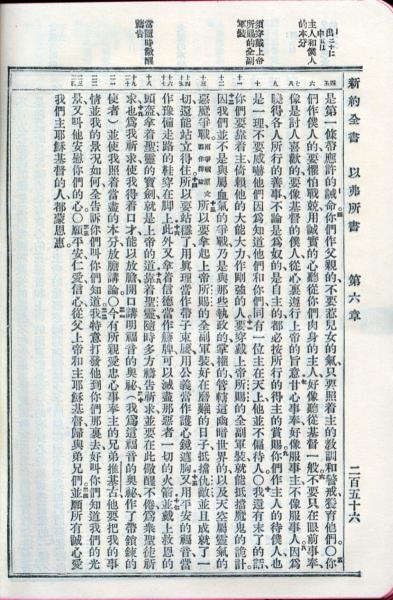 新約全書 以弗所書 第六章 二百五十六
出二十
主人和僕人
的本分
須穿戴上帝
所賜的全副
軍裝
當隨時儆醒
禱告
是第一條帶應許的誡你們作父親的不要惹兒女的氣只要照着主的教訓和警戒養育他們〇你
們作僕人的要懼怕戰兢用誠實的心聽從你們肉身的主人好像聽從基督一般不要只在眼前事奉
像是討人喜歡的要像基督的僕人從心裏遵行上帝的旨意甘心事奉好像服事主不像服事人因爲
曉得各人所行的善事不論是爲奴的是自主的都必按所行的得主的賞賜你們作主人的待僕人也
是一理不要威嚇他們因爲知道他們和你們同有一位主在天上他並不偏待人〇我還有末了的話
你們要靠着主倚賴他的大能大力作剛強的人要穿戴上帝所賜的全副軍裝就能抵擋魔鬼的詭計
因我們並不是與屬血氣的爭戰乃是與那些執政的掌權的管轄這幽暗世界的以及天空屬靈氣的
惡魔爭戰所以要拿起上帝所賜的全副軍裝好在磨難的日子抵擋仇敵並且成就了一
切還能站立得住所以要站穩了用眞理當作帶子束腰用公義當作護心鏡遮胸又用平安的福音當
作豫備走路的鞋穿在脚上此外又拿着信德當作籐牌可以滅盡那惡者一切的火箭並戴上救恩的
頭盔拿着聖靈的寶劍就是上帝的道靠着聖靈隨時多方禱告祈求並要在此儆醒不倦爲衆聖徒祈
求也爲我祈求使我得着口才能以放膽開口講明福音的奧祕(我爲這福音的奧祕作了帶鎖鍊的
使者)並使我照着當盡的本分放膽講論〇今有所親愛忠心事奉主的兄弟推基古他要把我的事
情並我的景況如何全告訴你們叫你們知道我特意打發他到你們那裏去好叫你們知道我們的光
景又叫他安慰你們的心〇願平安仁愛信心從父上帝和主耶穌基督歸與弟兄們並願所有誠心愛
我們主耶穌基督的人都蒙恩惠